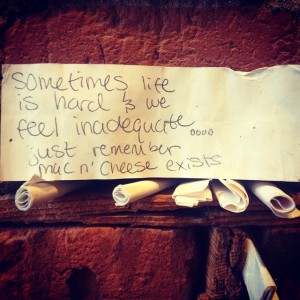 sometimes life
is hard & we
feel inadequate....
just remember
mac n' cheese exists